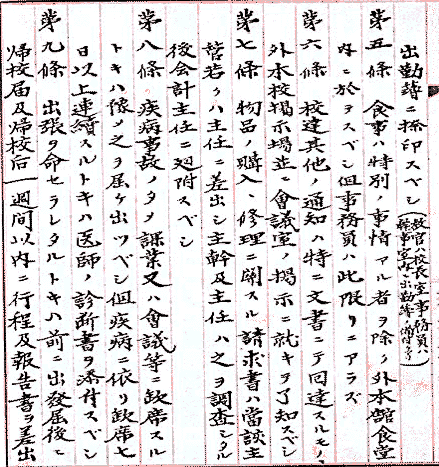 出勤簿ニ捺印スベシ(教官ハ校長室事務員ハ幹事室内ニ出勤簿ノ備付アリ)
第五條 食事ハ特別ノ事情アル者ヲ除ク外本館食堂
内ニ於テスベシ但事務員ハ此限リニアラズ
第六條 校達其他ノ通知ハ特ニ文書ニテ回達スルモノヽ
外本校掲示場並ニ會議室ノ掲示ニ就キテ了知スベシ
第七條 物品ノ購入、修理ニ関スル請求書ハ當該主
管若クハ主任ニ差出シ主幹及主任ハ之ヲ調査シタル
後会計主任ニ廻附スベシ
第八條 疾病事故ノタメ課業又ハ會議等ニ欠席スル
トキハ豫メ之ヲ届ケ出ツベシ但疾病ニ依リ欠席七
日以上連續スルトキハ医師ノ診断書ヲ添付スベシ
第九條 出張ヲ命セラレタルトキハ前ニ出発届後ニ
帰校届及帰校后一週間以内ニ行程及報告書ヲ差出